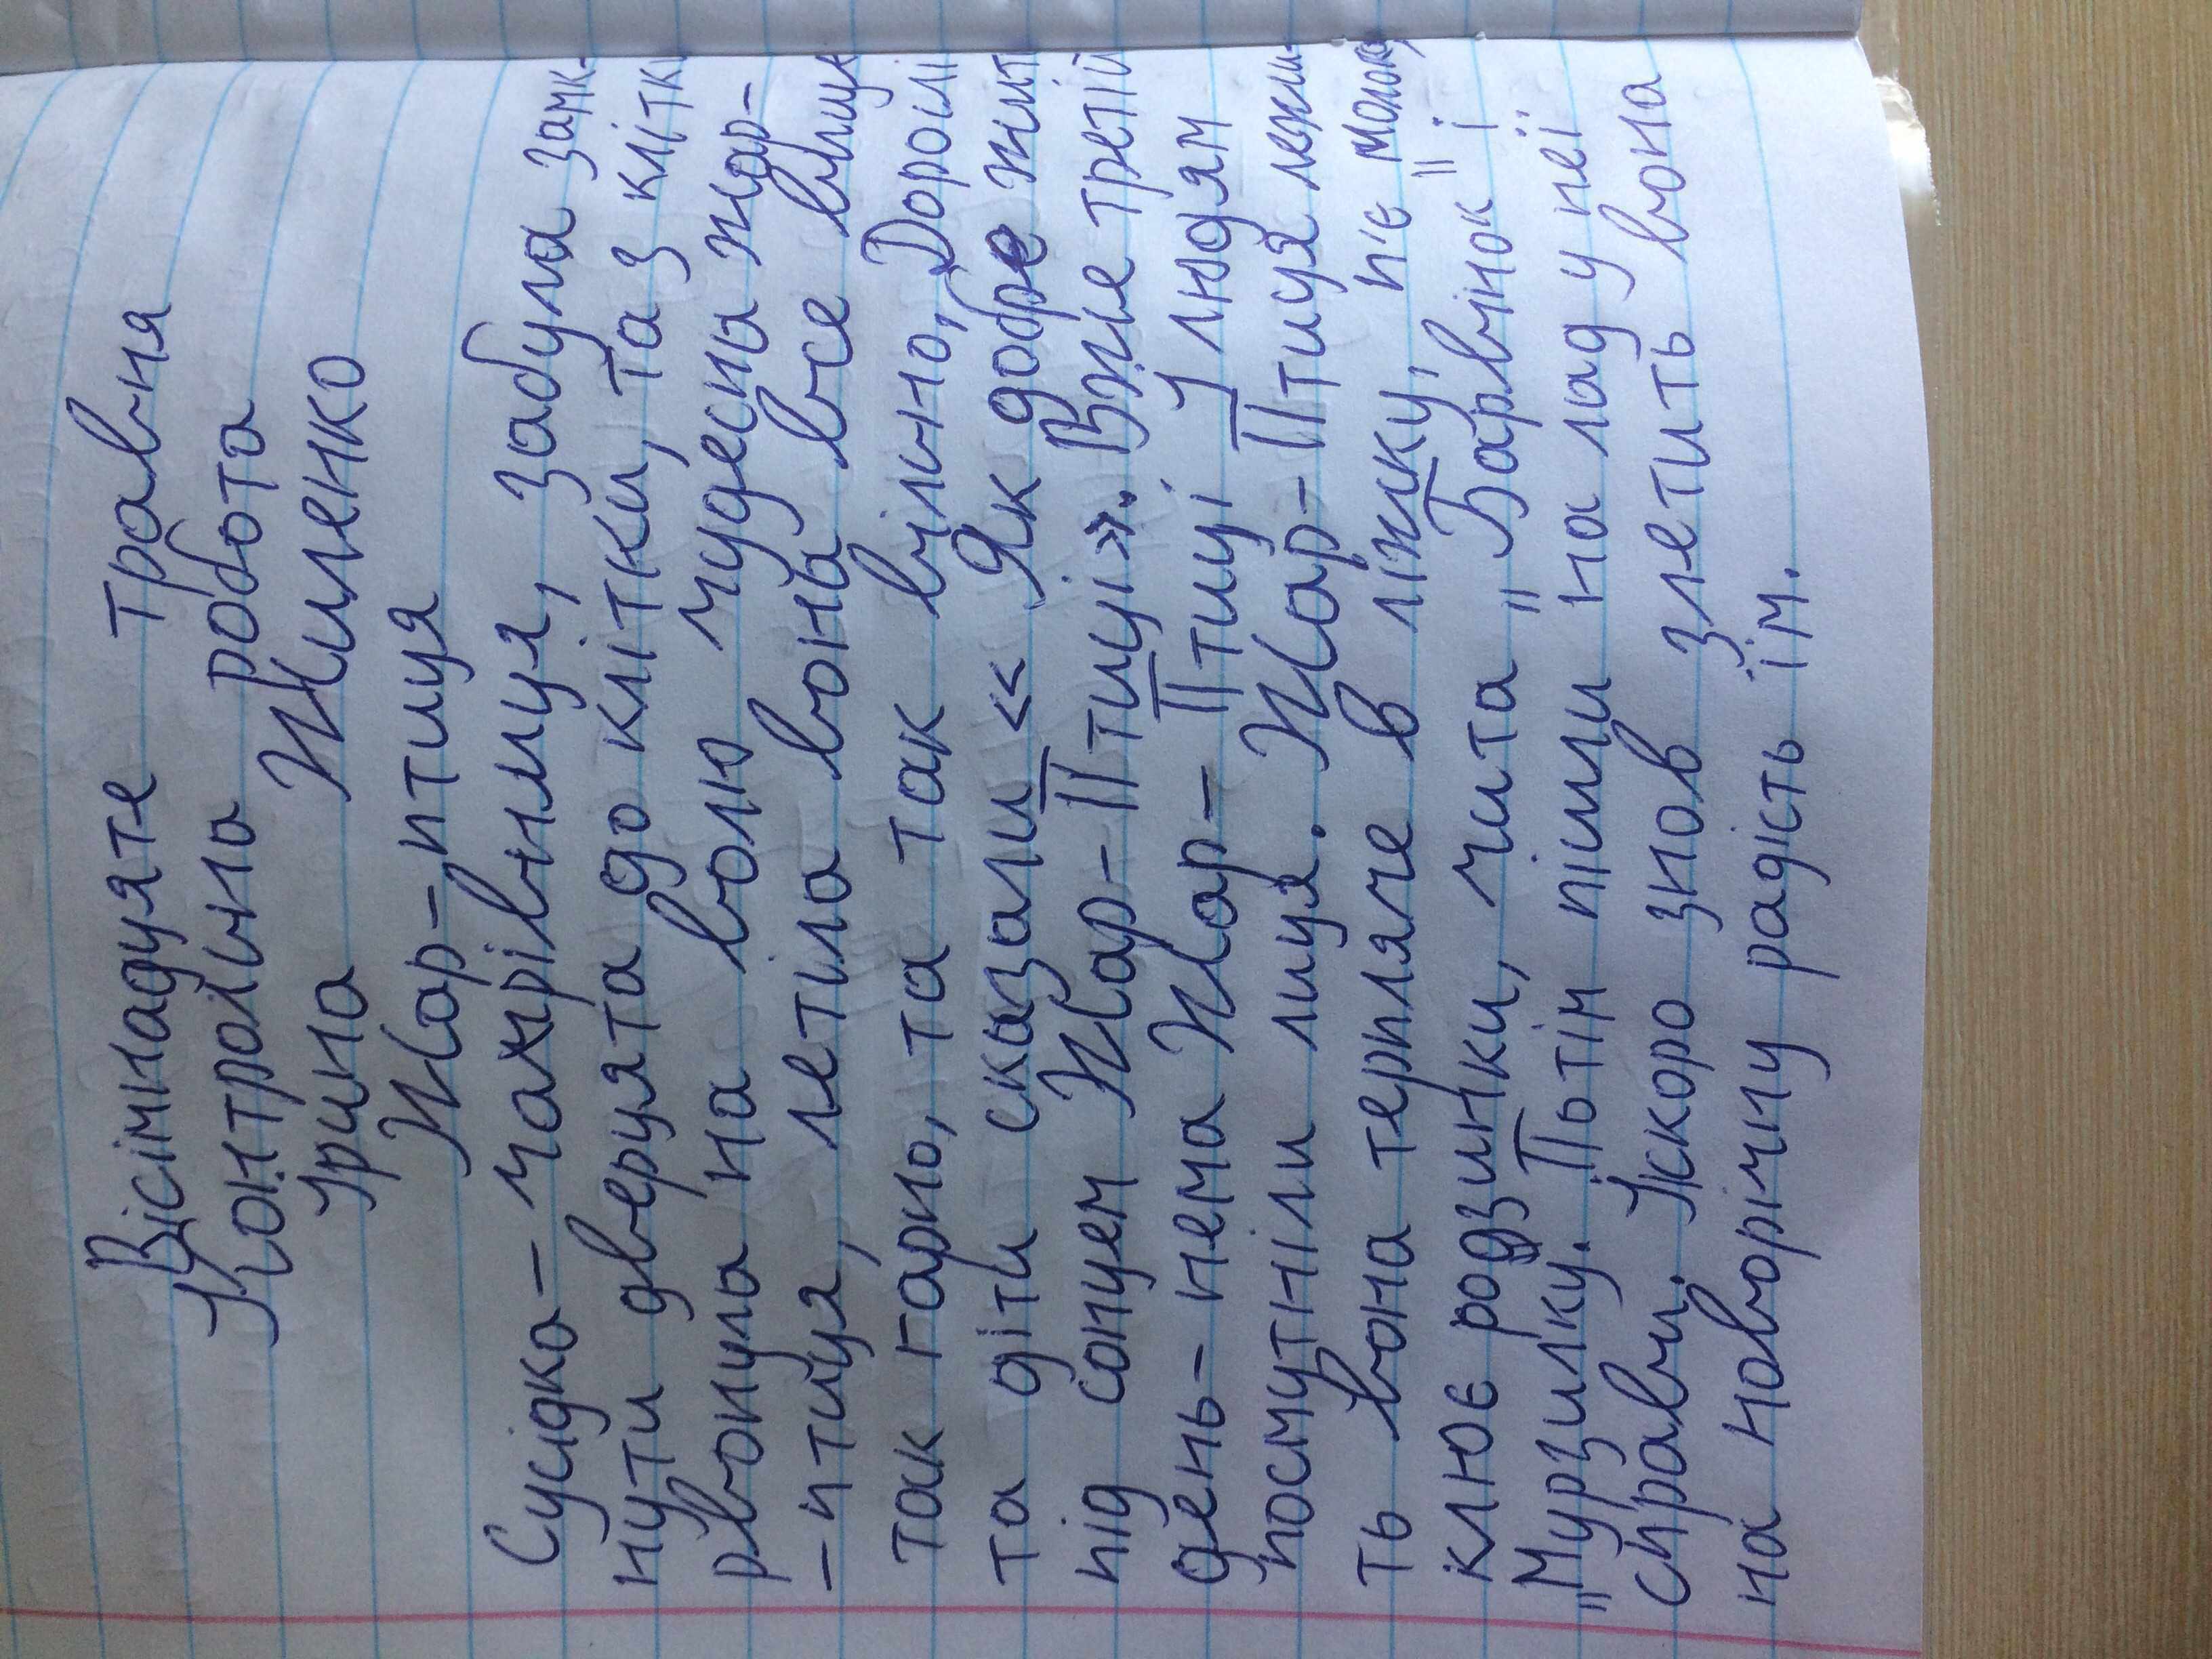 Вісімнадцяте травня
Контрольна робота
Ірина Жиленко
Жар-птиця
Сусідка - чахрівниця, забула замк-
нути дверцята до клітки, та з клітки
рвонула на волю чудесна жар-
-птиця, летіла вона все вище
так гарно, та так вільно, Дорослі
та діти сказали « Як добре жит
під сонцем Жар-Птиці». Вже третій
день - нема Жар-Птиці У людям
посмутніли лиця. Жар-Птиця лежи-
ть вона терпляче в ліжку, п'є молоко,
клює родзинки, чита „Барвінок" і
„Мурзилку. Потім пішли на лад у неї
справи. Іскоро знов злетить вона
на новорічну радість їм.